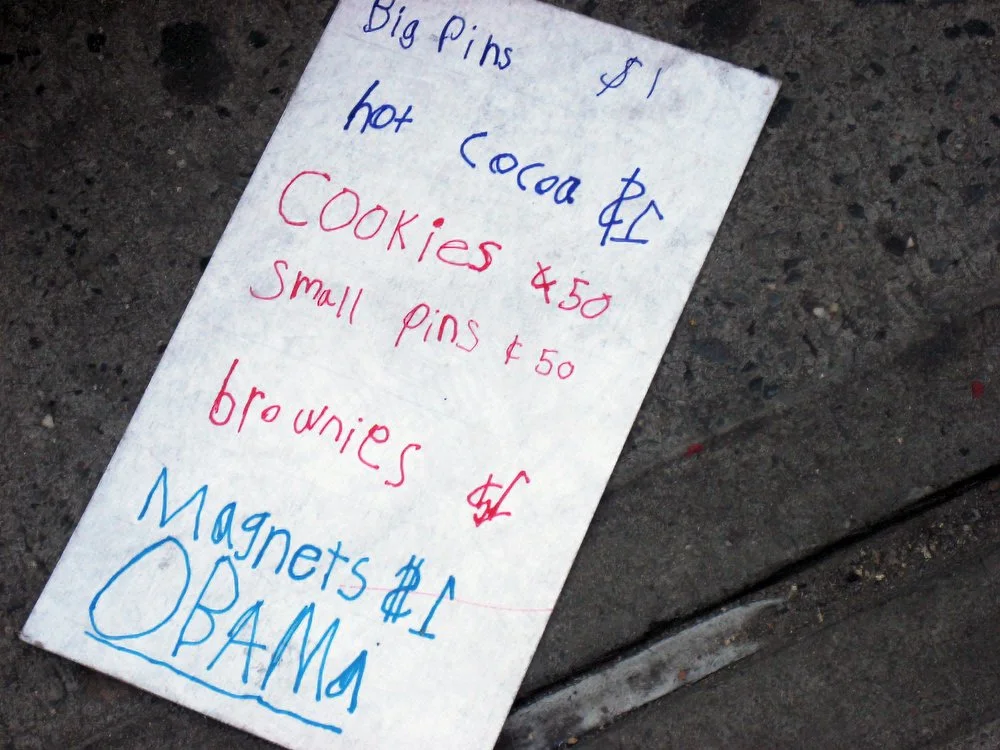 Big Pins $1
hot cocoa $1
COOKies ¢50
Small pins ¢50
brownies $1
Magnets $1
OBAMa